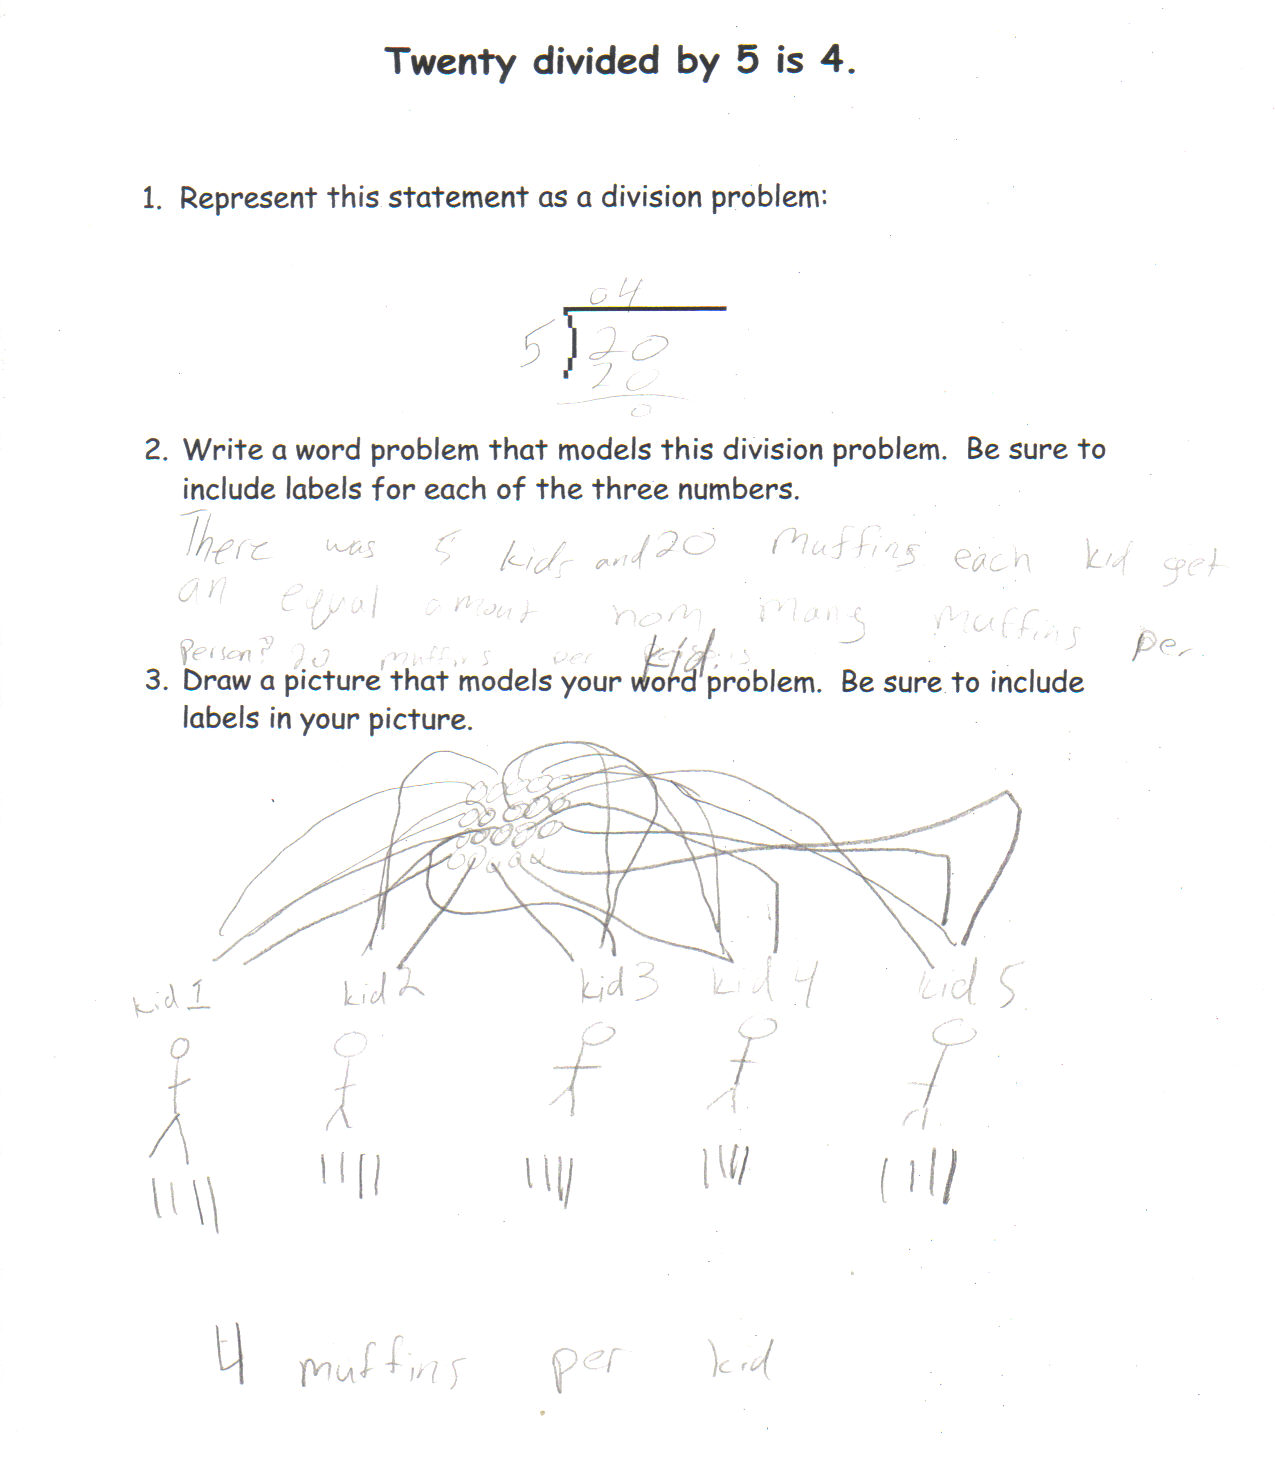 Twenty divided by 5 is 4.
1. Represent this statement as a division problem:
04
5 20
20
0
2. Write a word problem that models this division problem. Be sure to
include labels for each of the three numbers.
There was 5 kids and 20 muffins each kid get
an equal amout how many muffins per
Person? 20 muffins per kid.
3. Draw a picture that models your word problem. Be sure to include
labels in your picture.
kid 1 kid 2 kid 3 kid 4 kid 5
4 muffins per kid